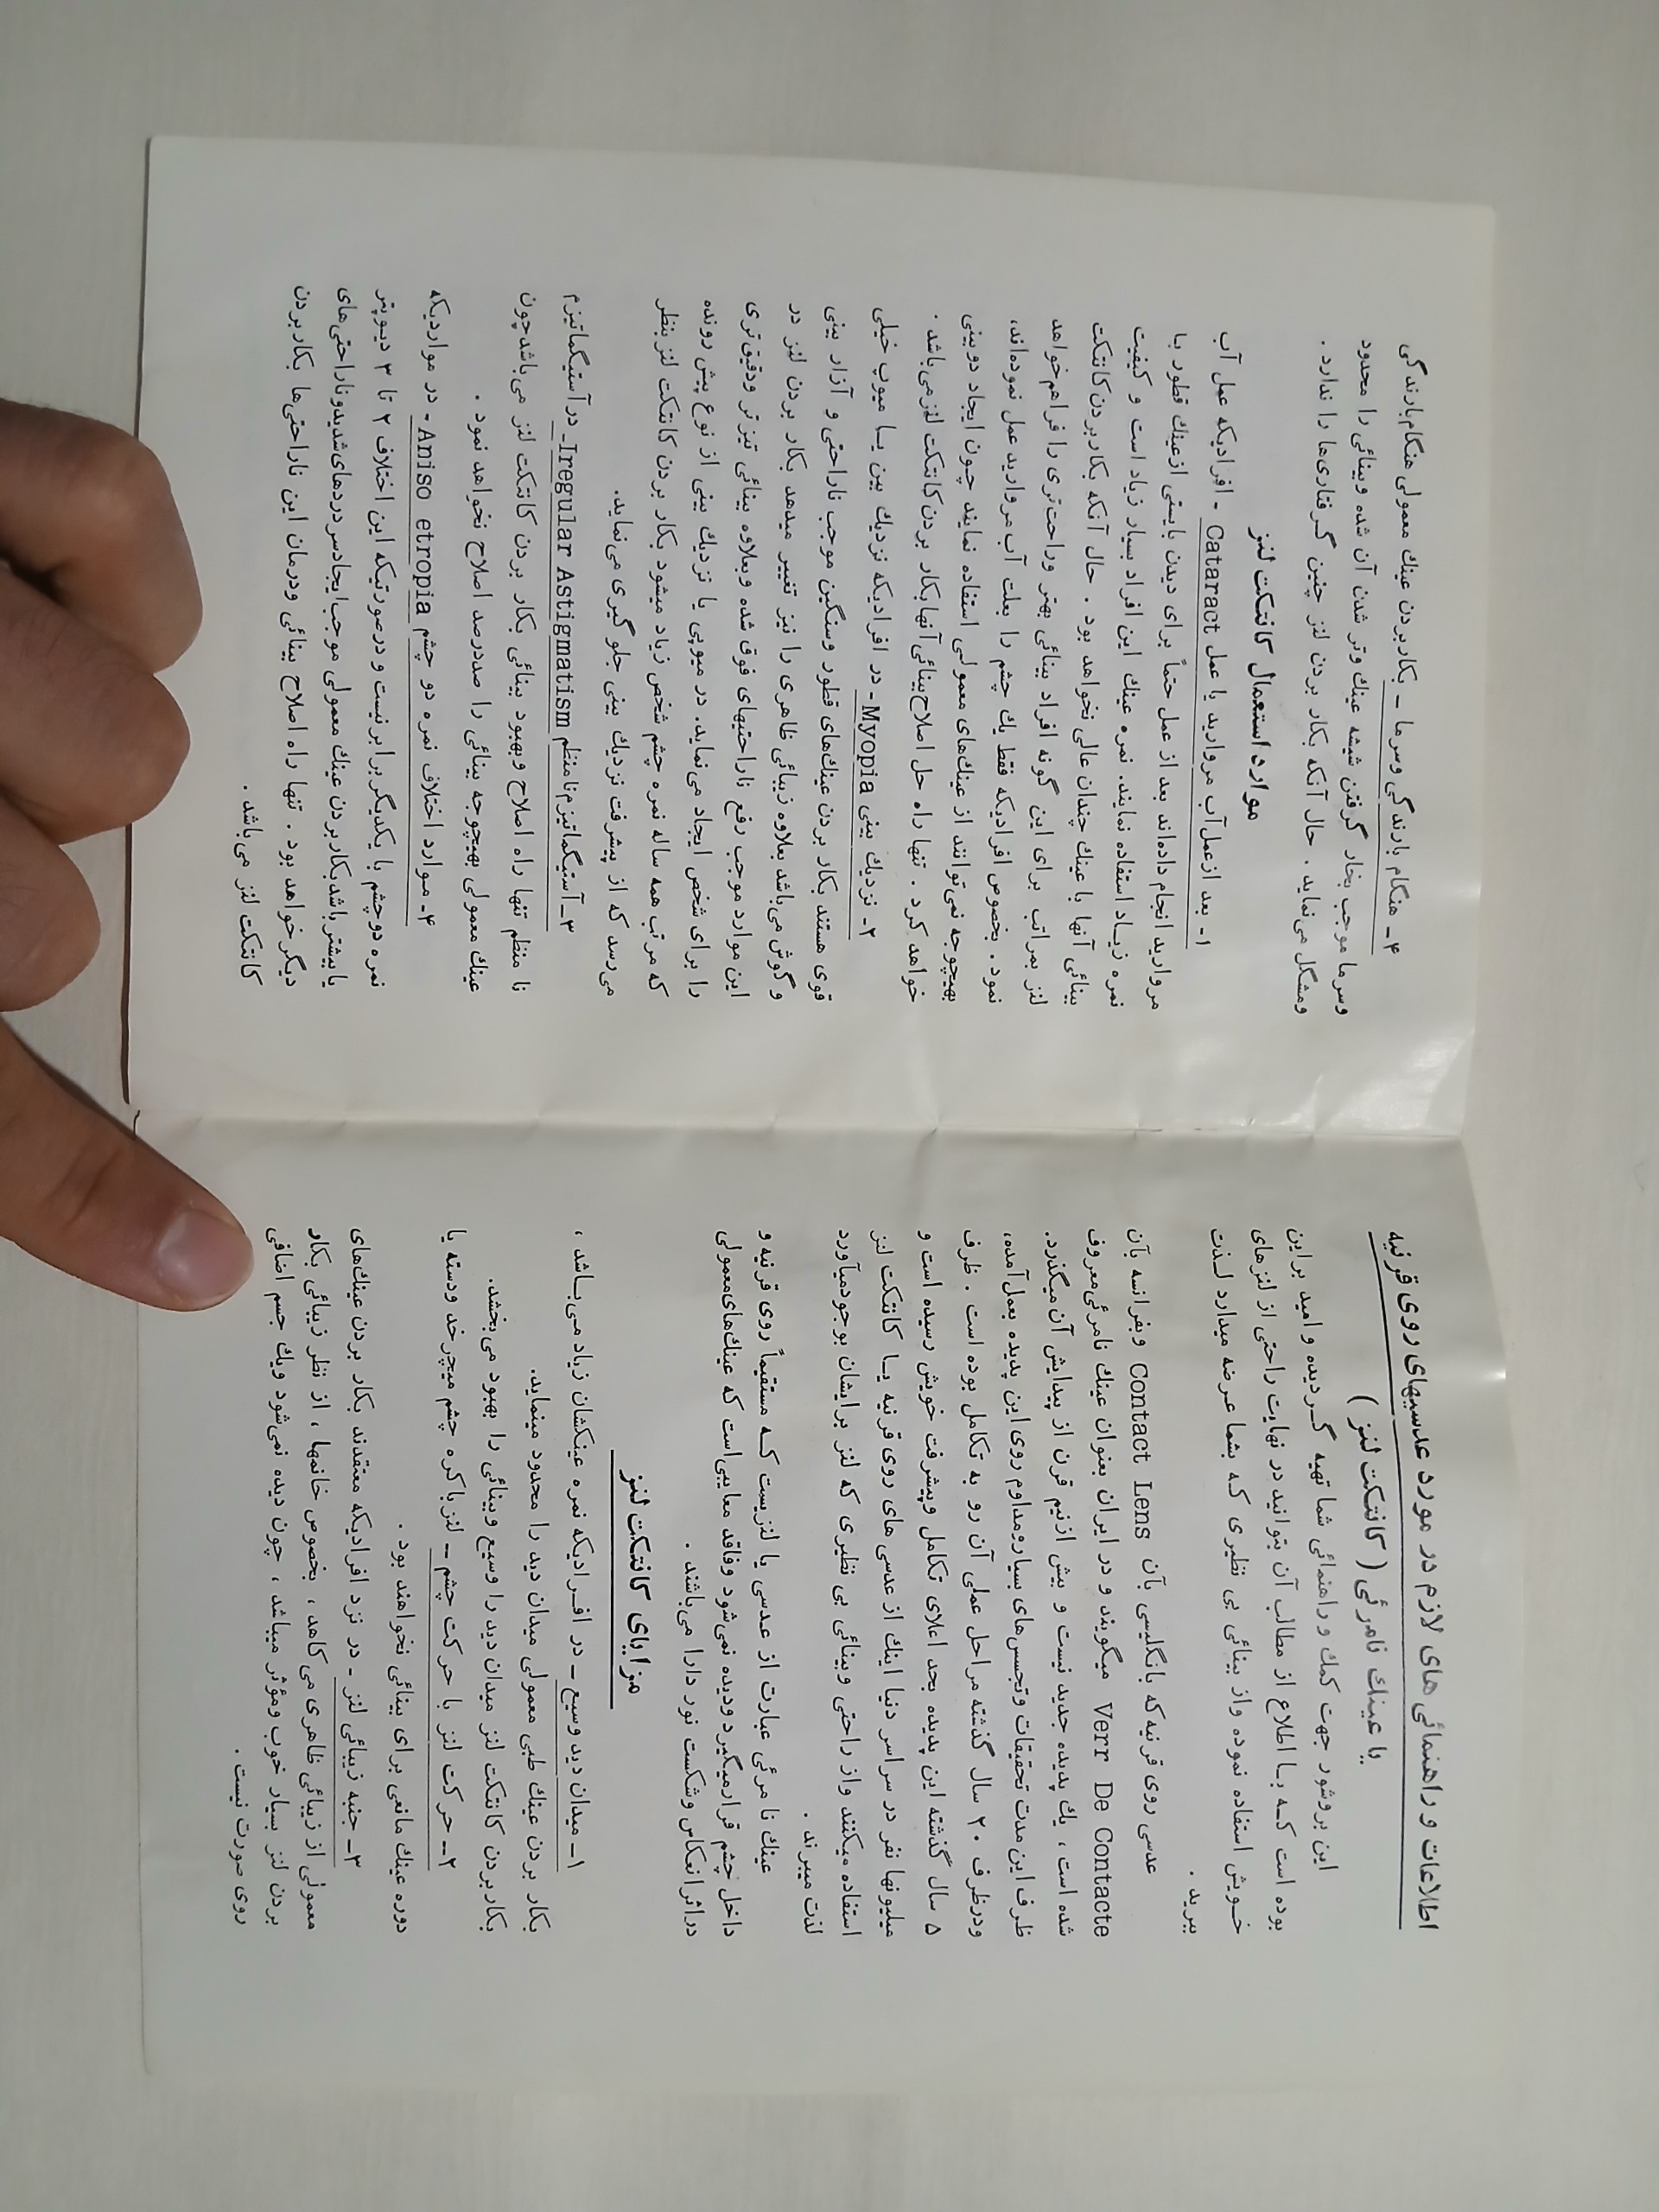 اطلاعات و راهنمائی های لازم در مورد عدسیهای روی قرنیه
یا عینك نامرئی ( کانتکت لنز )
این بروشور جهت کمك و راهنمائی شما تهیه گـردیده و امید بر این
بوده است کـه بـا اطلاع از مطالب آن بتوانید در نهایت راحتی از لنزهای
خـویش استفاده نموده واز بینائی بی نظیری کـه بشما عـرضه میدارد لـذت
ببرید .
عدسی روی قرنیه که بانگلیسی بآن Contact Lens وبفرانسه بآن
Verr De Contacte میگویند و در ایران بعنوان عینك نامرئی معروف
شده است ، یك پدیده جدید نیست و بیش ازنیم قرن از پیدایش آن میگذرد.
ظرف این مدت تحقیقات وتجسس‌های بسیار ومداوم روی این پدیده بعمل آمده،
ودرظرف ۲۰ سال گذشته مراحل عملی آن رو به تکامل بوده است . ظرف
۵ سال گذشته این پدیده بحد اعلای تکامل وپیشرفت خویش رسیده است و
میلیونها نفر در سراسر دنیا اینك از عدسی های روی قرنیه یـا کانتکت لنز
استفاده میکنند واز راحتی وبینائی بی نظیری که لنز برایشان بوجودمیآورد
لذت میبرند .
عینك نا مرئی عبارت از عدسی یا لنزیست کـه مستقیماً روی قرنیه و
داخل چشم قرارمیگیرد ودیده نمی‌شود وفاقد معایبی‌است که عینك‌های‌معمولی
دراثرانعکاس وشکست نور دارا می‌باشند .
مزایای کانتکت لنز
۱ــ میدان دید وسیع ــ در افـرادیکه نمره عینکشان زیاد مـی‌بـاشد ،
بکار بردن عینك طبی معمولی میدان دید را محدود مینماید.
بکاربردن کانتکت لنز میدان دید را وسیع وبینائی را بهبود می‌بخشد.
۲ــ حرکت لنز با حرکت چشم ــ لنز با کره چشم میچرخد ودسته یا
دوره عینك مانعی برای بینائی نخواهند بود .
۳ــ جنبه زیبائی لنز ــ در نزد افرادیکه معتقدند بکار بردن عینك‌های
معمولی از زیبائی ظاهری می‌کاهد ، بخصوص خانمها ، از نظر زیبائی بکار
بردن لنز بسیار خوب ومؤثر میباشد ، چون دیده نمی‌شود ویك جسم اضافی
روی صورت نیست .
۴ــ هنگام بارندگی وسرما ــ بکاربردن عینك معمولی هنگام‌بارندگی
وسرما موجب بخار گرفتن شیشه عینك وتر شدن آن شده وبینائی را محدود
ومشکل می‌نماید . حال آنکه بکار بردن لنز چنین گـرفتاری‌ها را ندارد .
موارد استعمال کانتکت لنز
۱ــ بعد ازعمل آب مروارید یا عمل Cataract ــ افرادیکه عمل آب
مروارید انجام داده‌اند بعد از عمل حتماً برای دیدن بایستی ازعینك قطور با
نمره زیـاد استفاده نمایند. نمره عینك این افراد بسیار زیاد است و کیفیت
بینائی آنها با عینك چندان عالی نخواهد بود . حال آنکه بکاربردن‌کانتکت
لنز بمراتب برای این گونه افراد بینائی بهتر وراحت‌تری را فراهم خواهد
نمود . بخصوص افرادیکه فقط یك چشم را بعلت آب‌مروارید عمل نموده‌اند،
بهیچوجه نمی‌توانند از عینك‌های معمولـی استفاده نمایند چـون ایجاد دوبینی
خواهد کرد . تنها راه حل اصلاح‌بینائی‌آنها بکار بردن کانتکت لنزمی‌باشد .
۲ــ نزدیك بینی Myopia ــ در افرادیکه نزدیك بین یـا میوپ خیلی
قوی هستند بکار بردن عینك‌های قطور وسنگین موجب ناراحتی و آزار بینی
و گوش می‌باشد بعلاوه زیبائی ظاهری را نیز تغییر میدهد بکار بردن لنز در
این موارد موجب رفع ناراحتیهای فوق شده وبعلاوه بینائی تیز تر ودقیق‌تری
را برای شخص ایجاد می‌نماید. در میوپی یا نزدیك بینی از نوع پیش رونده
که مرتب همه ساله نمره چشم شخص زیاد میشود بکار بردن کانتکت لنزبنظر
می‌رسد که از پیشرفت نزدیك بینی جلو گیری می‌نماید.
۳ــ آستیگماتیزم‌نامنظم Iregular Astigmatism ــ در آستیگماتیزم
نا منظم تنها راه اصلاح وبهبود بینائی بکار بردن کانتکت لنز می‌باشدچون
عینك معمولی بهیچوجه بینائی را صددرصد اصلاح نخواهد نمود .
۴ــ مـوارد اختلاف نمره دو چشم Aniso etropia ــ در مواردیکه
نمره دوچشم با یکدیگر برابر نیست و درصورتیکه این اختلاف ۲ تا ۳ دیـوپتر
یا بیشتر باشد بکاربردن عینك معمولی موجب ایجادسردردهای‌شدیدوناراحتی‌های
دیگر خواهد بود . تنها راه اصلاح بینائی ودرمان این ناراحتی‌ها بکاربردن
کانتکت لنز می‌باشد .